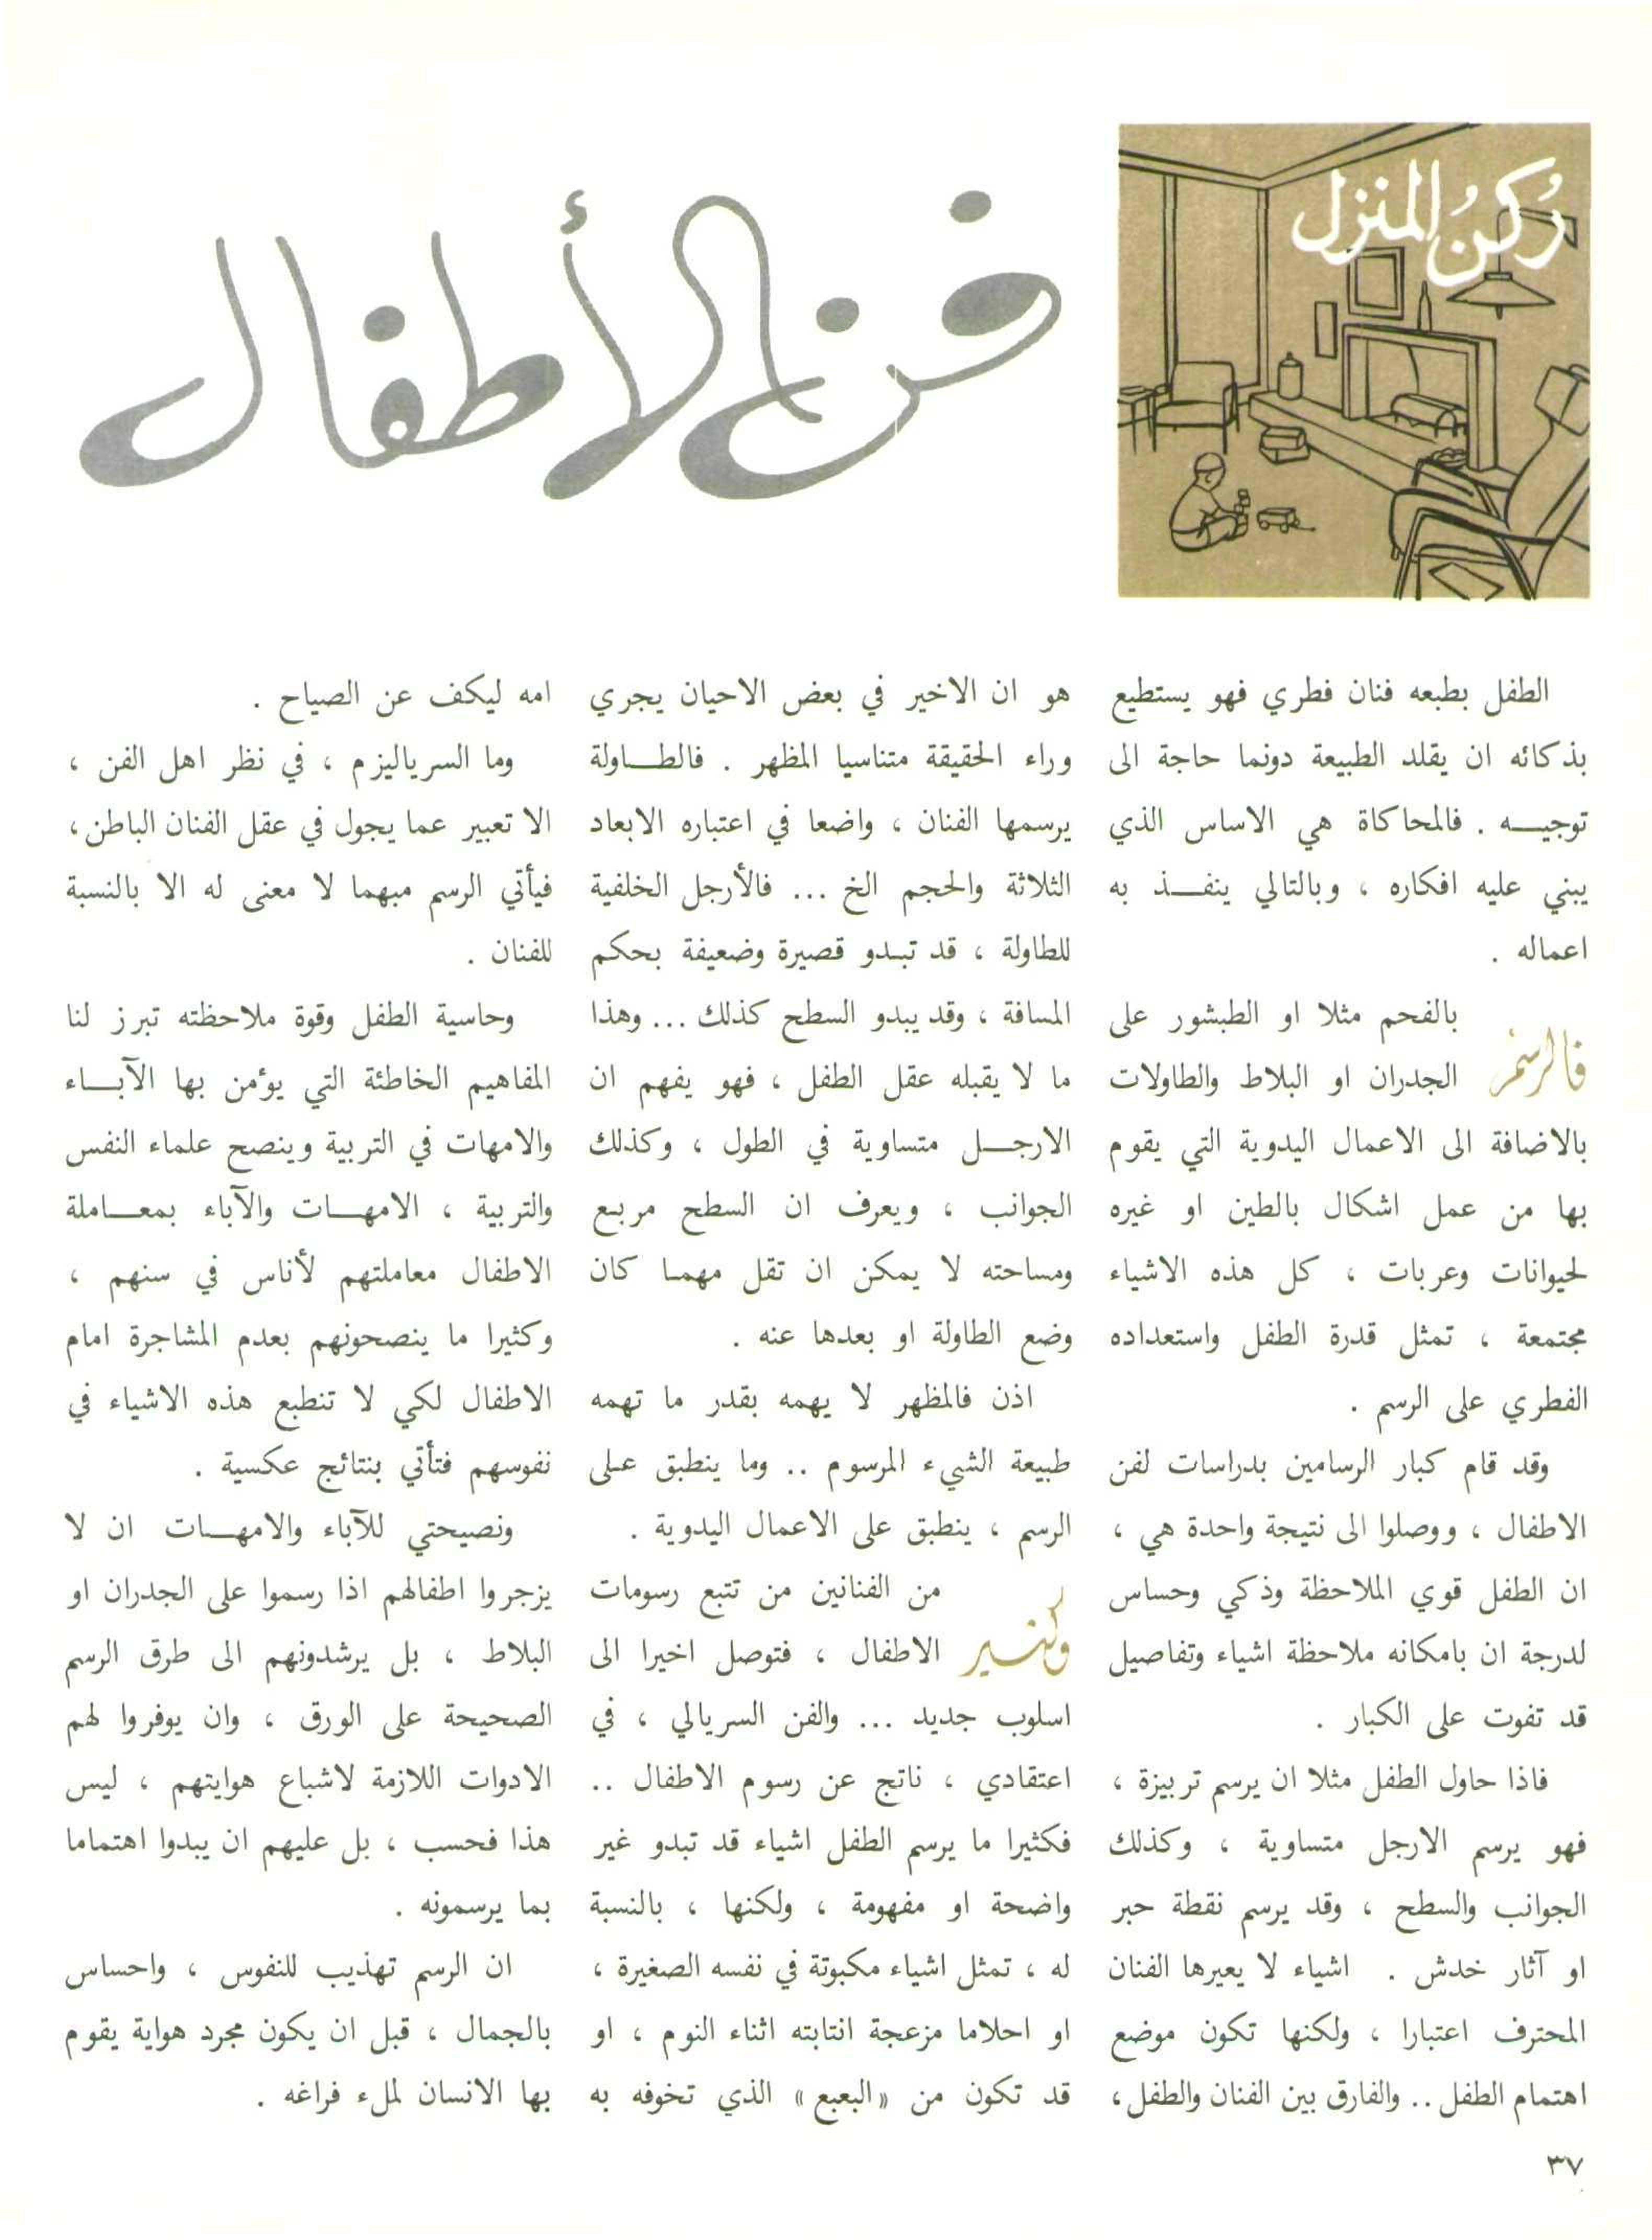 ركن المنزل
فن الأطفال
الطفل بطبعه فنان فطري فهو يستطيع
بذكائه ان يقلد الطبيعة دونما حاجة الى
توجيـــه . فالمحاكاة هي الاساس الذي
يبني عليه افكاره ، وبالتالي ينفـــذ به
اعماله .
فالرسم بالفحم مثلا او الطبشور على
الجدران او البلاط والطاولات
بالاضافة الى الاعمال اليدوية التي يقوم
بها من عمل اشكال بالطين او غيره
لحيوانات وعربات ، كل هذه الاشياء
مجتمعة ، تمثل قدرة الطفل واستعداده
الفطري على الرسم .
وقد قام كبار الرسامين بدراسات لفن
الاطفال ، ووصلوا الى نتيجة واحدة هي ،
ان الطفل قوي الملاحظة وذكي وحساس
لدرجة ان بامكانه ملاحظة اشياء وتفاصيل
قد تفوت على الكبار .
فاذا حاول الطفل مثلا ان يرسم تربيزة ،
فهو يرسم الارجل متساوية ، وكذلك
الجوانب والسطح ، وقد يرسم نقطة حبر
او آثار خدش . اشياء لا يعيرها الفنان
المحترف اعتبارا ، ولكنها تكون موضع
اهتمام الطفل .. والفارق بين الفنان والطفل ،
هو ان الاخير في بعض الاحيان يجري
وراء الحقيقة متناسيا المظهر . فالطـــاولة
يرسمها الفنان ، واضعا في اعتباره الابعاد
الثلاثة والحجم الخ ... فالأرجل الخلفية
للطاولة ، قد تبدو قصيرة وضعيفة بحكم
المسافة ، وقد يبدو السطح كذلك ... وهذا
ما لا يقبله عقل الطفل ، فهو يفهم ان
الارجـــل متساوية في الطول ، وكذلك
الجوانب ، ويعرف ان السطح مربع
ومساحته لا يمكن ان تقل مهما كان
وضع الطاولة او بعدها عنه .
اذن فالمظهر لا يهمه بقدر ما تهمه
طبيعة الشيء المرسوم .. وما ينطبق على
الرسم ، ينطبق على الاعمال اليدوية .
وكثير من الفنانين من تتبع رسومات
الاطفال ، فتوصل اخيرا الى
اسلوب جديد ... والفن السريالي ، في
اعتقادي ، ناتج عن رسوم الاطفال ..
فكثيرا ما يرسم الطفل اشياء قد تبدو غير
واضحة او مفهومة ، ولكنها ، بالنسبة
له ، تمثل اشياء مكبوتة في نفسه الصغيرة ،
او احلاما مزعجة انتابته اثناء النوم ، او
قد تكون من «البعبع» الذي تخوفه به
امه ليكف عن الصياح .
وما السرياليزم ، في نظر اهل الفن ،
الا تعبير عما يجول في عقل الفنان الباطن ،
فيأتي الرسم مبهما لا معنى له الا بالنسبة
للفنان .
وحاسية الطفل وقوة ملاحظته تبرز لنا
المفاهيم الخاطئة التي يؤمن بها الآبـــاء
والامهات في التربية وينصح علماء النفس
والتربية ، الامهـــات والآباء بمعـــاملة
الاطفال معاملتهم لأناس في سنهم ،
وكثيرا ما ينصحونهم بعدم المشاجرة امام
الاطفال لكي لا تنطبع هذه الاشياء في
نفوسهم فتأتي بنتائج عكسية .
ونصيحتي للآباء والامهـــات ان لا
يزجروا اطفالهم اذا رسموا على الجدران او
البلاط ، بل يرشدونهم الى طرق الرسم
الصحيحة على الورق ، وان يوفروا لهم
الادوات اللازمة لاشباع هوايتهم ، ليس
هذا فحسب ، بل عليهم ان يبدوا اهتماما
بما يرسمونه .
ان الرسم تهذيب للنفوس ، واحساس
بالجمال ، قبل ان يكون مجرد هواية يقوم
بها الانسان لملء فراغه .
٣٧